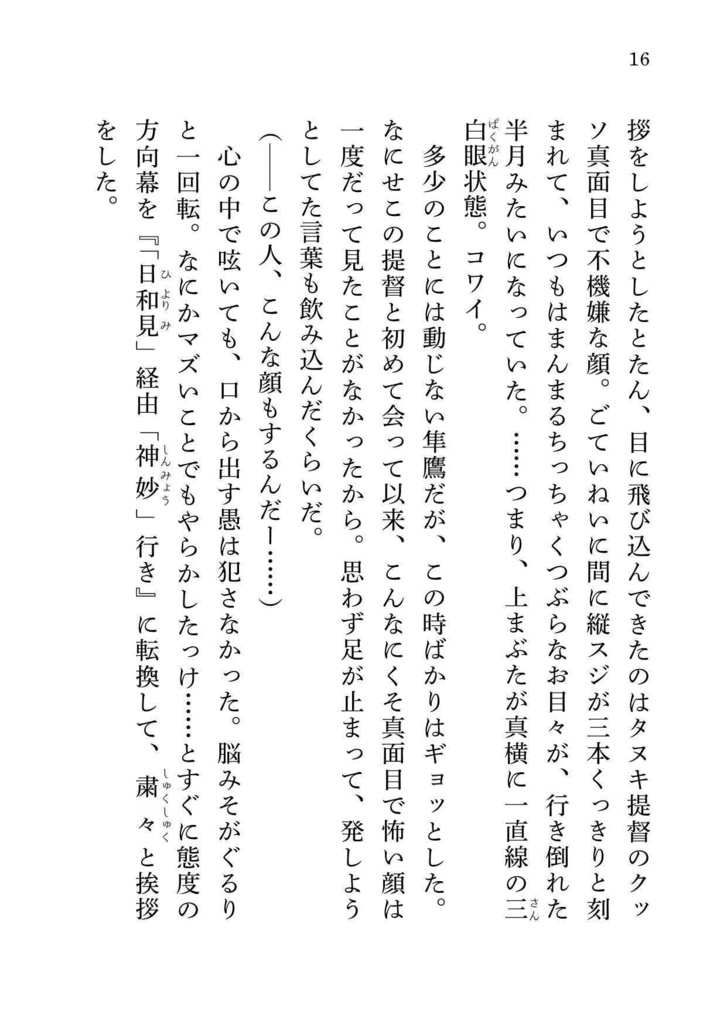 16
拶をしようとしたとたん、目に飛び込んできたのはタヌキ提督のクッ
ソ真面目で不機嫌な顔。ごていねいに間に縦スジが三本くっきりと刻
まれて、いつもはまんまるちっちゃくつぶらなお目々が、行き倒れた
半月みたいになっていた。……つまり、上まぶたが真横に一直線の三
さん
白眼状態。コワイ。
ぱくがん
多少のことには動じない隼鷹だが、この時ばかりはギョッとした。
なにせこの提督と初めて会って以来、こんなにくそ真面目で怖い顔は
一度だって見たことがなかったから。思わず足が止まって、発しよう
としてた言葉も飲み込んだくらいだ。
(――この人、こんな顔もするんだー……)
心の中で呟いても、口から出す愚は犯さなかった。脳みそがぐるり
と一回転。なにかマズいことでもやらかしたっけ……とすぐに態度の
方向幕を『「日和見」経由「神妙」行き』に転換して、粛々と挨拶
ひよりみ
しんみょう
しゅくしゅく
をした。